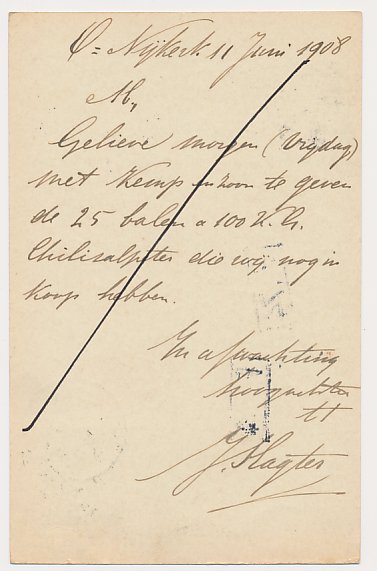 O = Nijkerk 11 Juni 1908
M,
Gelieve morgen (Vrijdag)
met Kemp en Zoon te geven
de 25 balen a 100 K.G.
Chilisalpeter die wij nog in
koop hebben.
In afwachting
hoogachtend
tt
J. Slagter